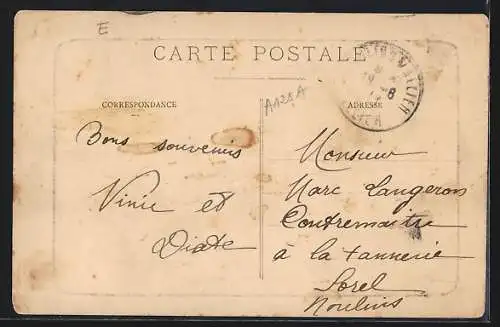 E
CARTE POSTALE
A128A
CORRESPONDANCE
ADRESSE
Bons souvenirs
Vinie et
Diate
Monsieur
Marc Langeron
Contremaître
à la tannerie
Sorel
Moulins